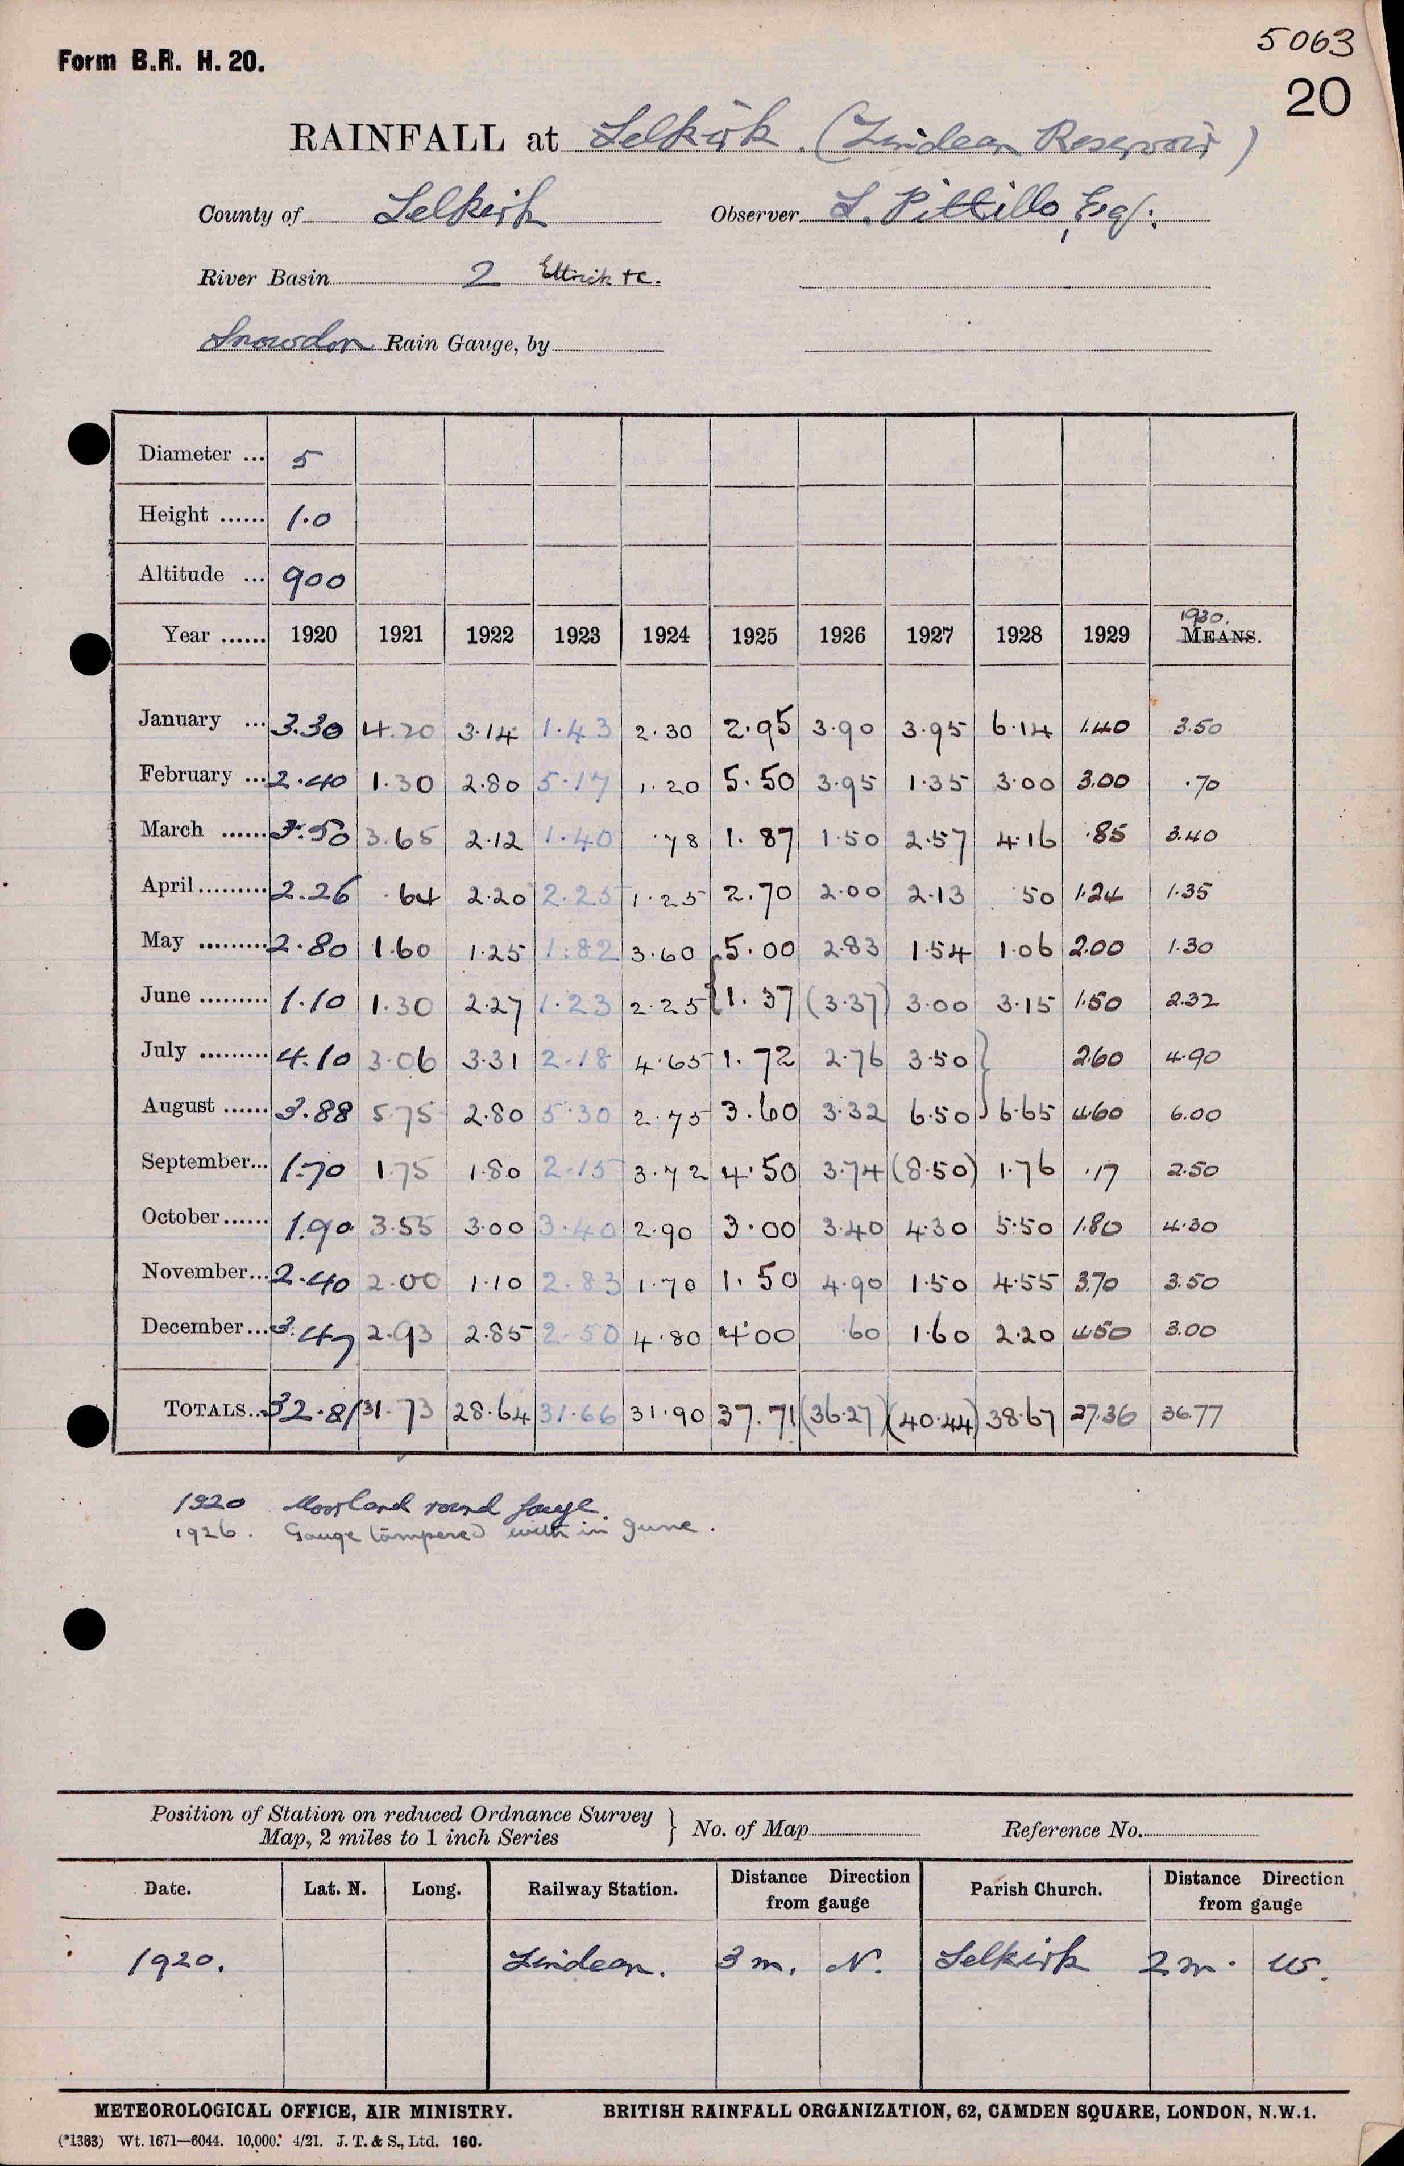 5063
Form B.R. H. 20.
20
RAINFALL at Selkirk. (Lindean Reservoir)
County of Selkirk Observer L. Pittillo, Esq.
River Basin 2 Ettrick +c.
Snowdon Rain Gauge, by
Diameter ... 5
Height ...... 1.0
Altitude ... 900
1930.
Year ...... 1920 1921 1922 1923 1924 1925 1926 1927 1928 1929 MEANS.
January ... 3.30 4.20 3.14 1.43 2.30 2.95 3.90 3.95 6.14 1.40 3.50
February ... 2.40 1.30 2.80 5.17 1.20 5.50 3.95 1.35 3.00 3.00 .70
March ...... 3.50 3.65 2.12 1.40 .78 1.87 1.50 2.57 4.16 .85 3.40
April ......... 2.26 .64 2.20 2.25 1.25 2.70 2.00 2.13 .50 1.24 1.35
May ......... 2.80 1.60 1.25 1.82 3.60 5.00 2.83 1.54 1.06 2.00 1.30
June ......... 1.10 1.30 2.27 1.23 2.25 1.37 (3.37) 3.00 3.15 1.50 2.32
July ......... 4.10 3.06 3.31 2.18 4.65 1.72 2.76 3.50 2.60 4.90
August ...... 3.88 5.75 2.80 5.30 2.75 3.60 3.32 6.50 6.65 4.60 6.00
September... 1.70 1.75 1.80 2.15 3.72 4.50 3.74 (8.50) 1.76 .17 2.50
October...... 1.90 3.55 3.00 3.40 2.90 3.00 3.40 4.30 5.50 1.80 4.30
November... 2.40 2.00 1.10 2.83 1.70 1.50 4.90 1.50 4.55 3.70 3.50
December... 3.47 2.93 2.85 2.50 4.80 4.00 .60 1.60 2.20 4.50 3.00
TOTALS... 32.81 31.73 28.64 31.66 31.90 37.71 (36.27) (40.44) 38.67 27.36 36.77
1920 Moorland round gauge.
1926. Gauge tampered with in June.
Position of Station on reduced Ordnance Survey
Map, 2 miles to 1 inch Series } No. of Map Reference No.
Date. Lat. N. Long. Railway Station. Distance Direction from gauge Parish Church. Distance Direction from gauge
1920. Lindean. 3 m. N. Selkirk 2 m. W.
METEOROLOGICAL OFFICE, AIR MINISTRY. BRITISH RAINFALL ORGANIZATION, 62, CAMDEN SQUARE, LONDON, N.W.1.
(*1383) Wt. 1671—6044. 10,000. 4/21. J. T. & S., Ltd. 160.